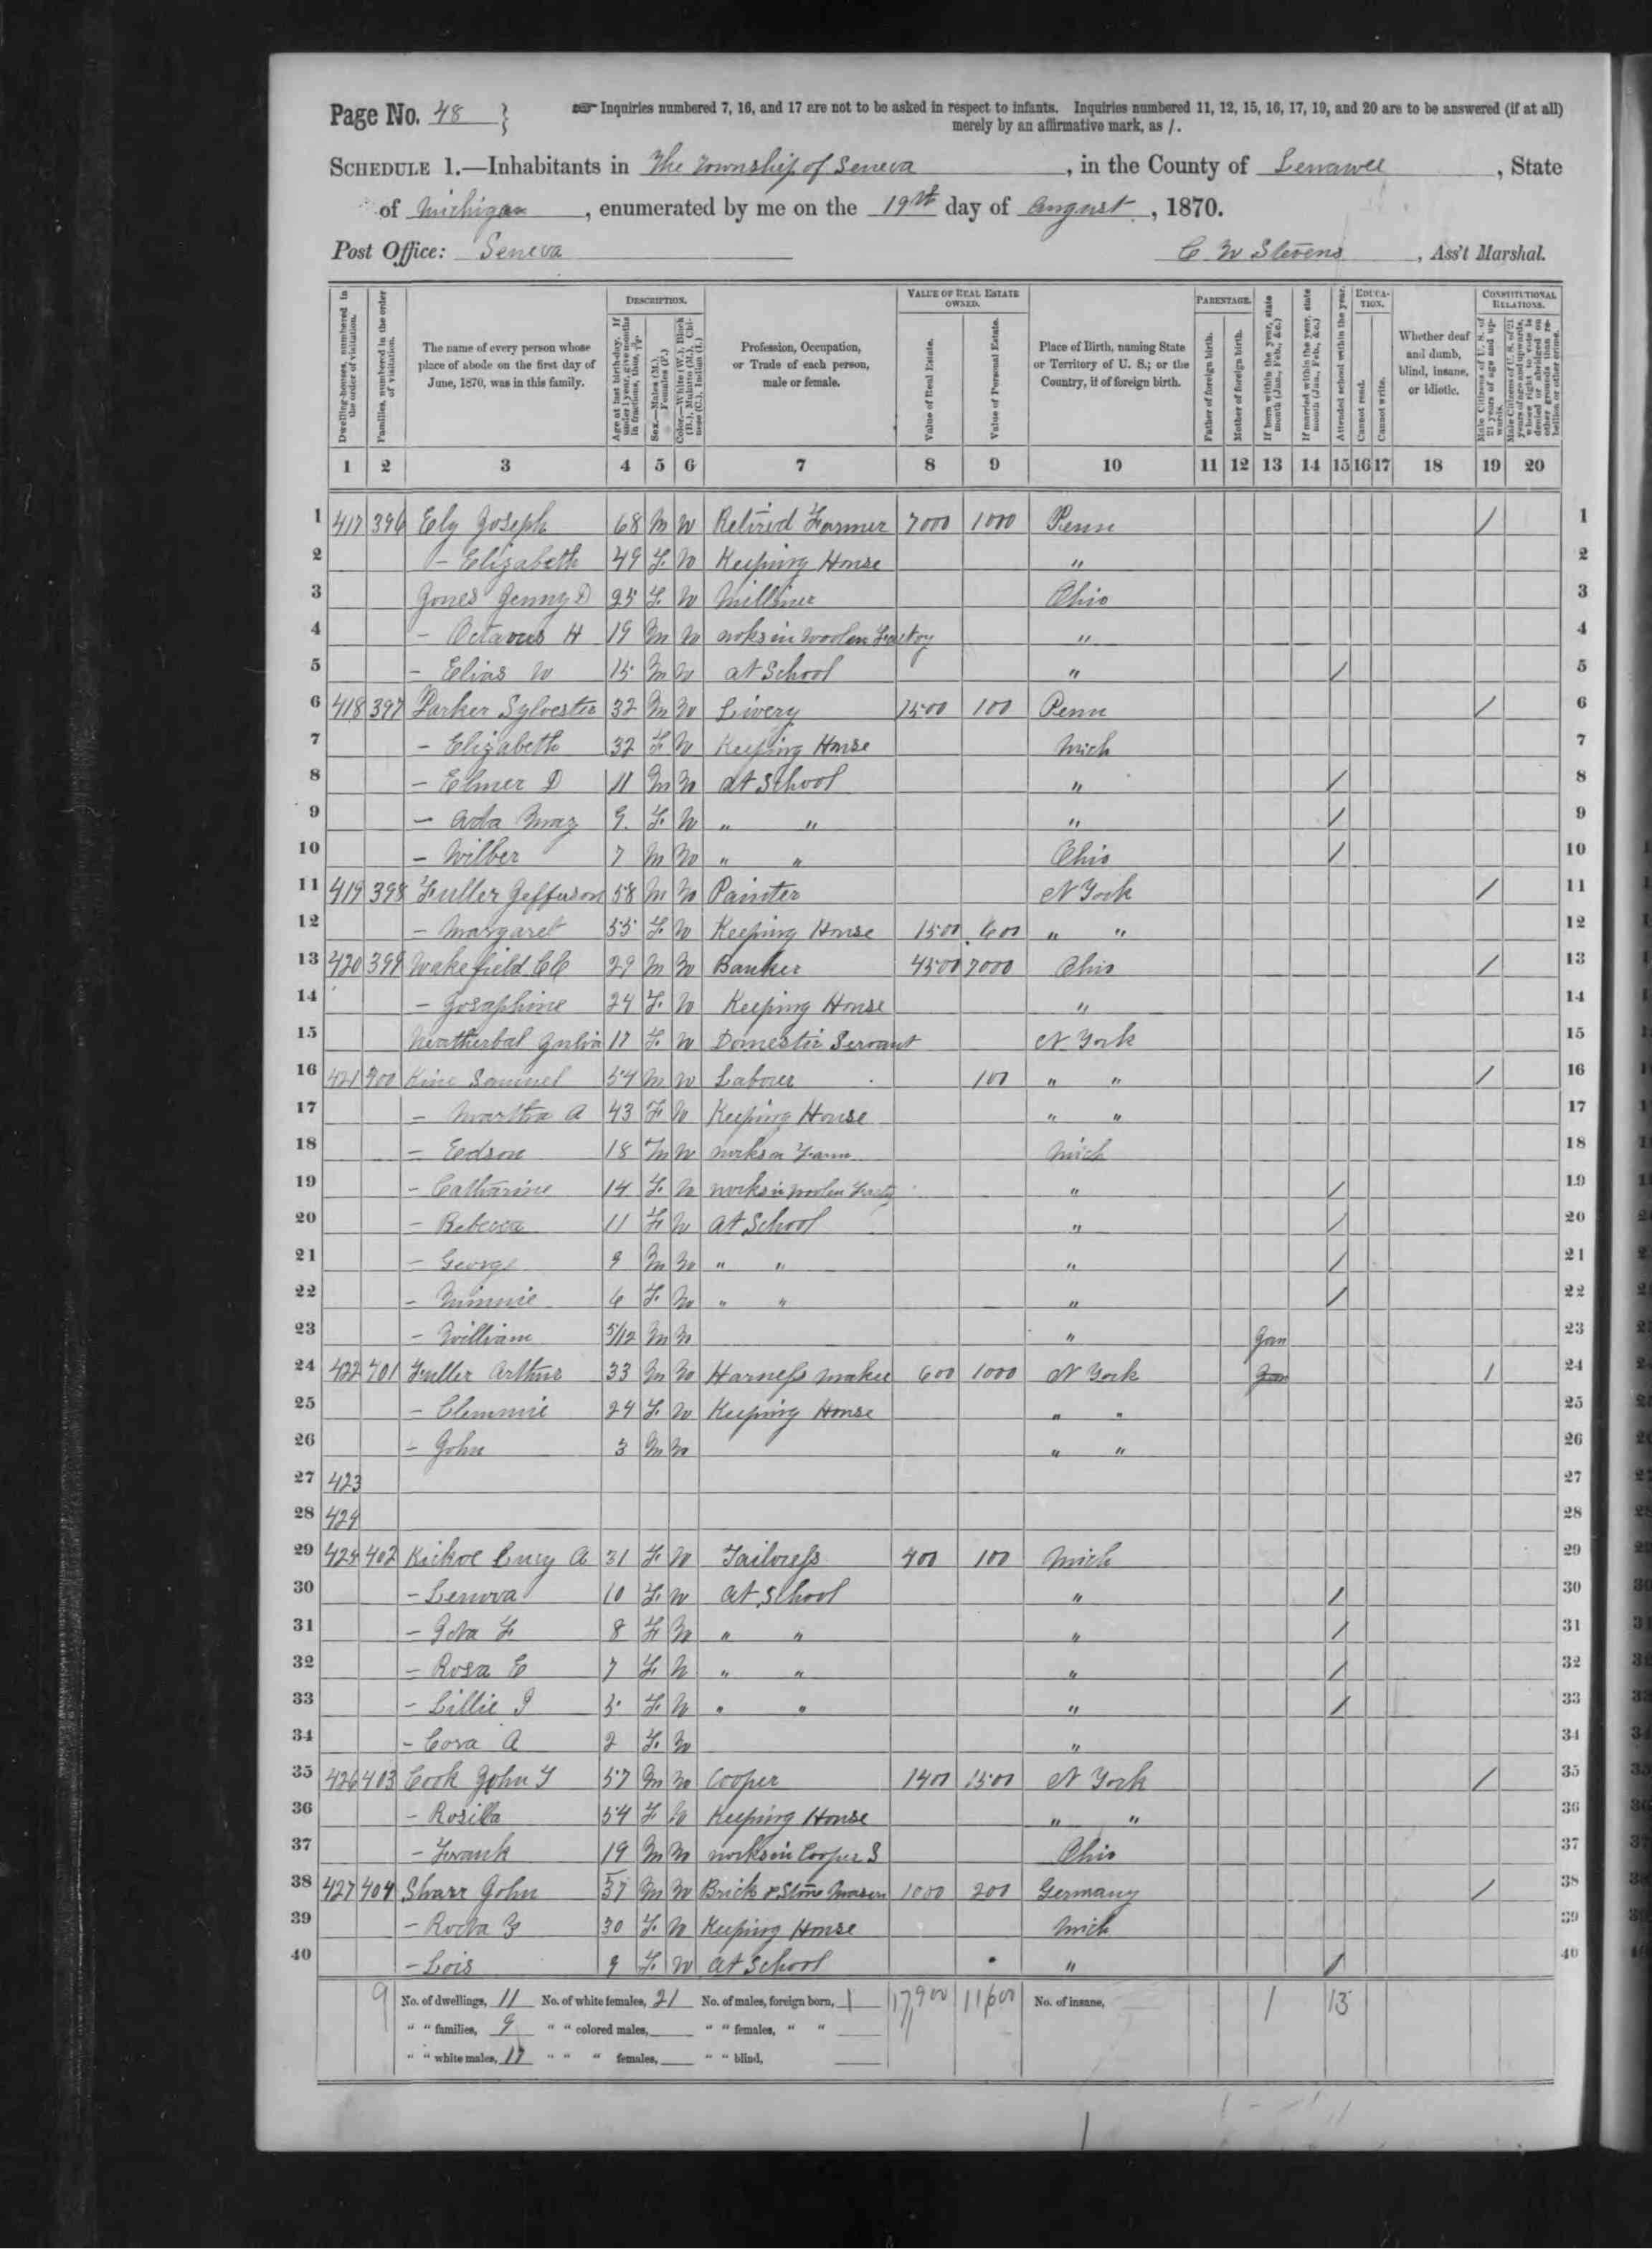 Page No. 48 }
Inquiries numbered 7, 16, and 17 are not to be asked in respect to infants. Inquiries numbered 11, 12, 15, 16, 17, 19, and 20 are to be answered (if at all)
merely by an affirmative mark, as /.
SCHEDULE 1.—Inhabitants in The Township of Seneva, in the County of Lenawee, State
of Michigan, enumerated by me on the 19th day of August, 1870.
Post Office: Seneva C W Stevens, Ass't Marshal.
Dwelling-houses, numbered in the order of visitation.
Families, numbered in the order of visitation.
The name of every person whose place of abode on the first day of June, 1870, was in this family.
DESCRIPTION.
Age at last birthday. If under 1 year, give months in fractions, thus, 3/12.
Sex.—Males (M.), Females (F.)
Color.—White (W.), Black (B.), Mulatto (M.), Chinese (C.), Indian (I.)
Profession, Occupation, or Trade of each person, male or female.
VALUE OF REAL ESTATE OWNED.
Value of Real Estate.
Value of Personal Estate.
Place of Birth, naming State or Territory of U. S.; or the Country, if of foreign birth.
PARENTAGE.
Father of foreign birth.
Mother of foreign birth.
If born within the year, state month (Jan., Feb., &c.)
If married within the year, state month (Jan., Feb., &c.)
Attended school within the year.
EDUCATION.
Cannot read.
Cannot write.
Whether deaf and dumb, blind, insane, or idiotic.
CONSTITUTIONAL RELATIONS.
Male Citizens of U. S. of 21 years of age and upwards.
Male Citizens of U. S. of 21 years of age and upwards, where right to vote is denied or abridged on other grounds than rebellion or other crime.
1 2 3 4 5 6 7 8 9 10 11 12 13 14 15 16 17 18 19 20
1 417 396 Ely Joseph 68 M W Retired Farmer 7000 1000 Penn / 1
2 – Elizabeth 49 F W Keeping House " 2
3 Jones Jenny D 25 F W Milliner Ohio 3
4 – Octavus H 19 M W works in woolen Factoy " 4
5 – Elias W 15 M W at School " / 5
6 418 397 Parker Sylvester 32 M W Livery 1500 100 Penn / 6
7 – Elizabeth 32 F W Keeping House Mich 7
8 – Elmer D 11 M W at School " / 8
9 – Ada May 9 F W " " " / 9
10 – Wilber 7 M W " " Ohio / 10
11 419 398 Fuller Jefferson 58 M W Painter N York / 11
12 – Margaret 55 F W Keeping House 1500 600 " " 12
13 420 399 Wakefield CC 29 M W Banker 4500 7000 Ohio / 13
14 – Josaphine 24 F W Keeping House " 14
15 Weatherbal Julia 17 F W Domestic Servant N York 15
16 421 400 Kine Samuel 54 M W Laborer 100 " " / 16
17 – Martha A 43 F W Keeping House " " 17
18 – Edson 18 M W works on Farm Mich 18
19 – Catharine 14 F W works in woolen Facty " / 19
20 – Rebecca 11 F W at School " / 20
21 – George 9 M W " " " / 21
22 – Minnie 6 F W " " " / 22
23 – William 5/12 M W " Jan 23
24 422 401 Fuller Arthur 33 M W Harness maker 600 1000 N York Jan / 24
25 – Clemmie 24 F W Keeping House " " 25
26 – John 3 M W " " 26
27 423 27
28 424 28
29 425 402 Lucy A 31 F W Tailoress 400 100 Mich 29
30 – Lenora 10 F W at School " / 30
31 – F 8 F W " " " / 31
32 – Rosa E 7 F W " " " / 32
33 – Lillie J 5 F W " " " / 33
34 – Cora A 2 F W " 34
35 426 403 Cook John 57 M W Cooper 1400 1500 N York / 35
36 – Rosilla 54 F W Keeping House " " 36
37 – Frank 19 M W works in Cooper S Ohio 37
38 427 404 Sharr John 37 M W Brick & Stone Mason 1000 200 Germany / 38
39 – 30 F W Keeping House Mich 39
40 – Lois 9 F W at School " / 40
9 No. of dwellings, 11 No. of white females, 21 No. of males, foreign born, 1 17,900 11,600 No. of insane, 1 13
" " families, 9 " " colored males, " " females, " "
" " white males, 17 " " " females, " " blind,